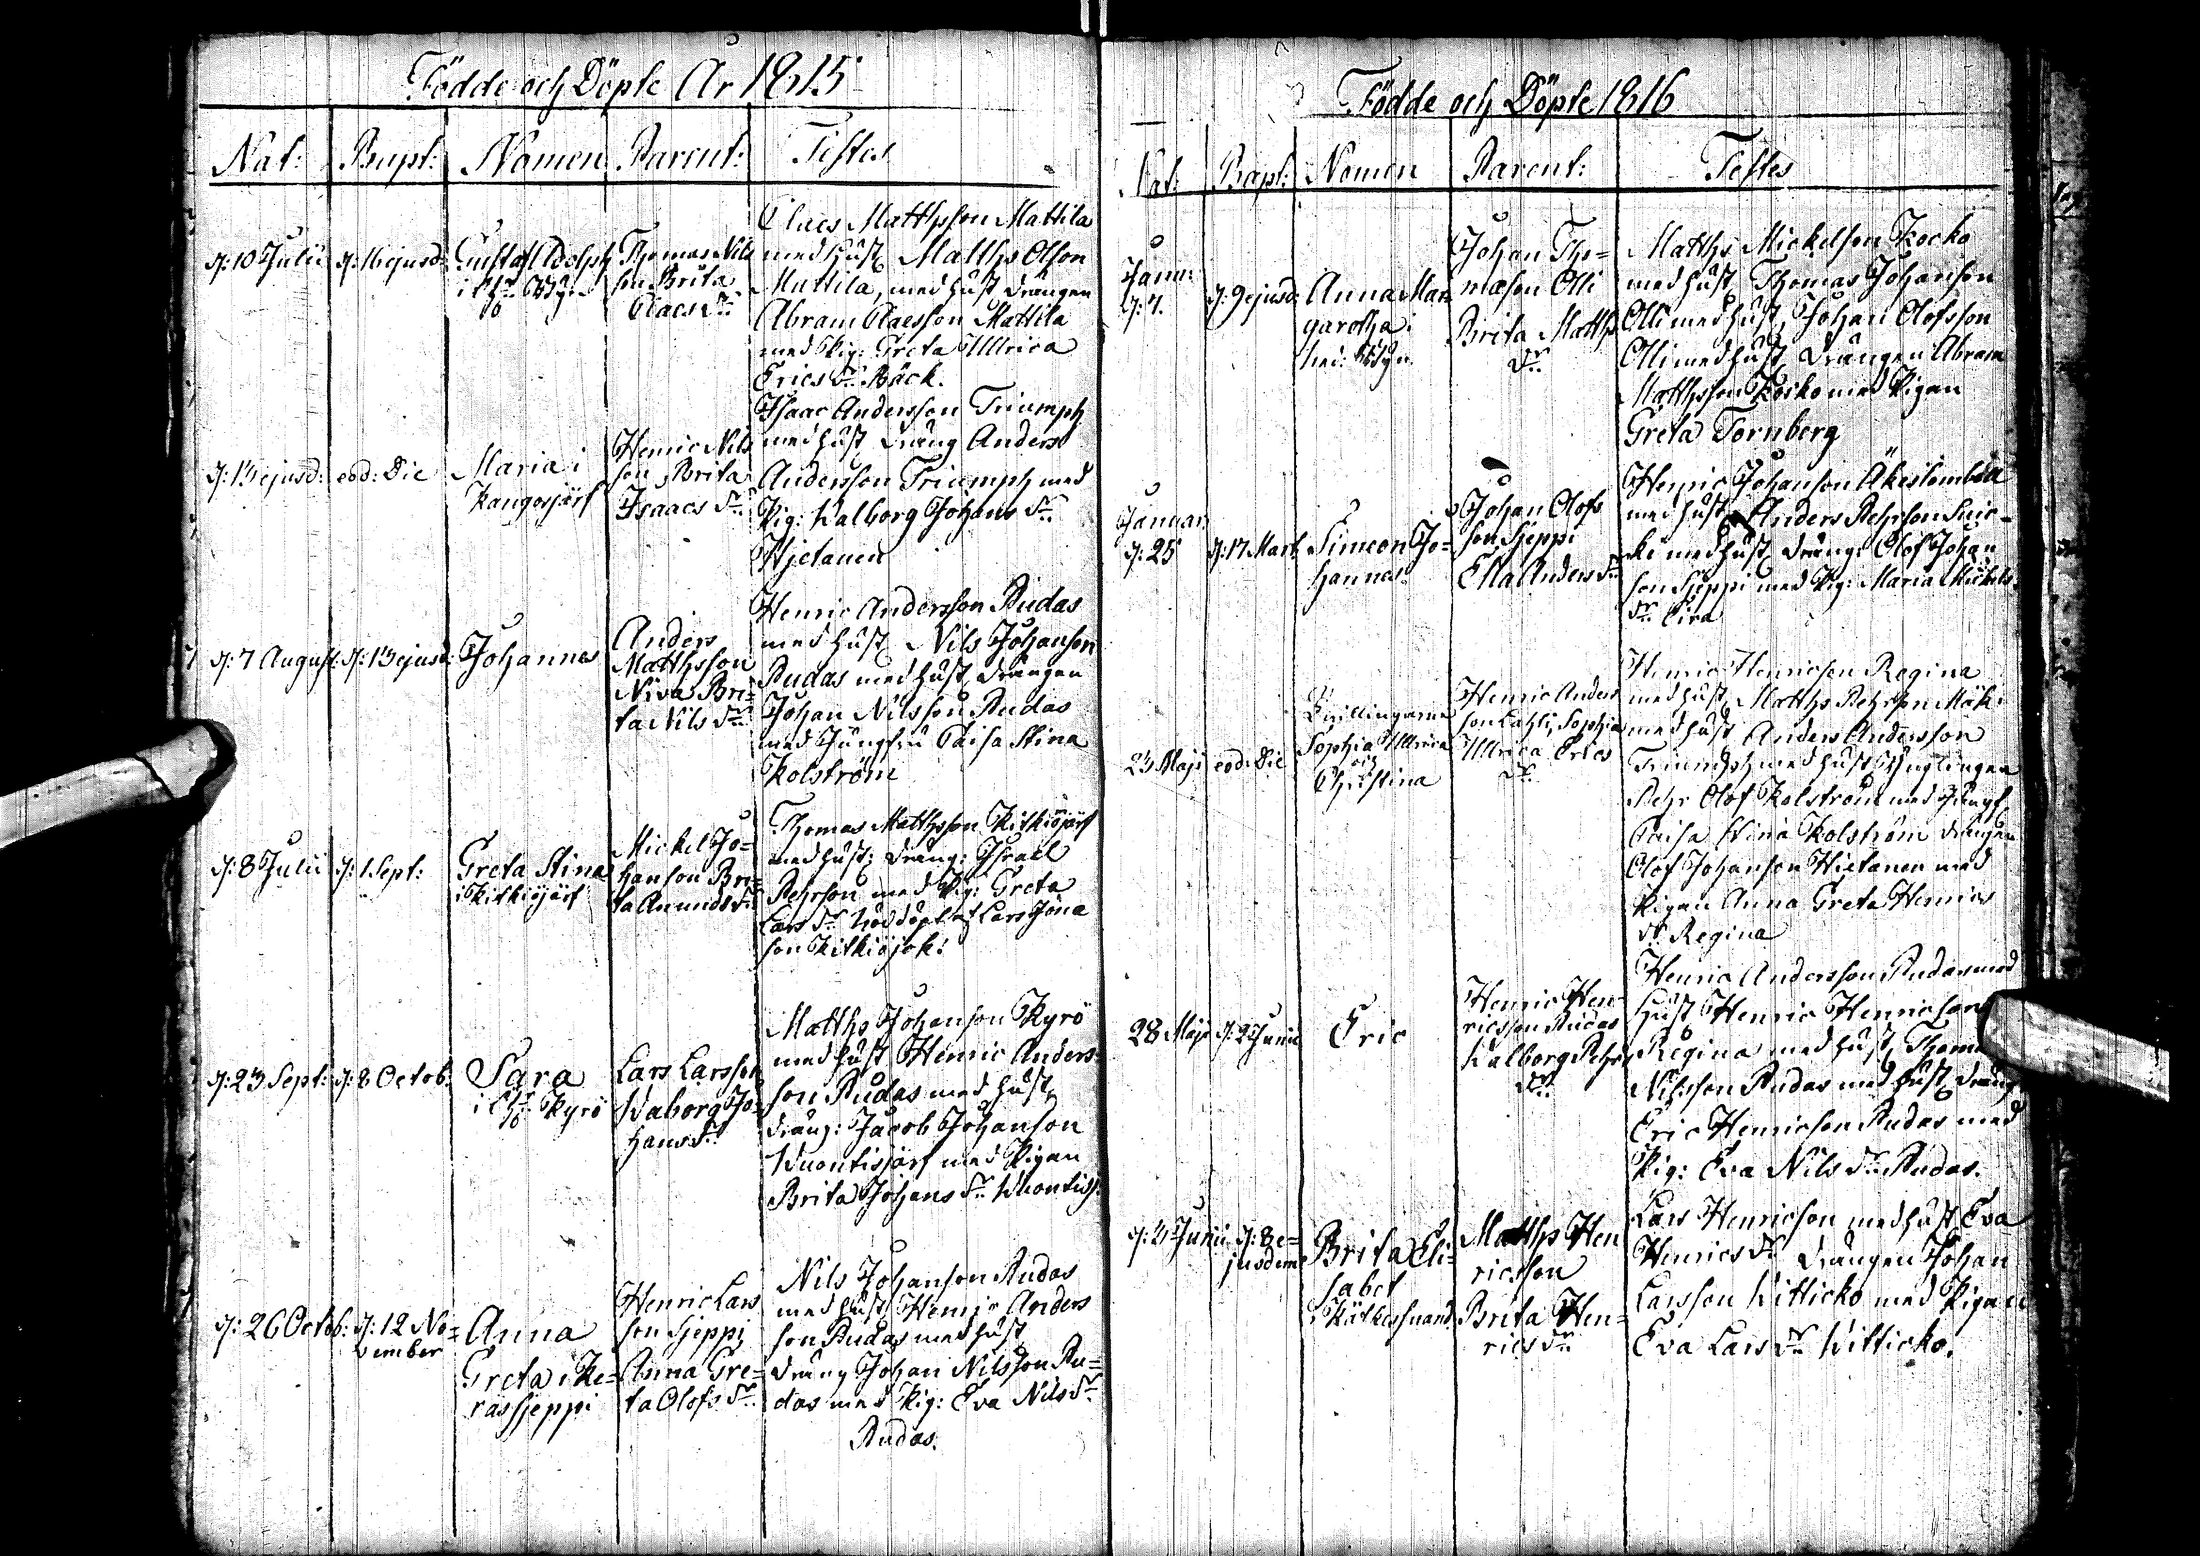 Födde och Döpte År 1815
Nat: Bapt: Nomen Parent: Testes
d: 10 Julii d: 16 ejusd: Gustaf Adolph
Thomas Nils
son Brita
Claes dr
Claes Matthsson Mattila
med hust Matths Olsson
Mattila, med hust drängen
Abram Claesson Mattila
med Pig: Greta Ullrica
Erics dr Bäck.
d: 13 ejusd: eod: Die Maria i
Kangosjärf
Henric Nils
son Brita
Isaacs dr
Isaac Andersson Triumph
med hust dräng Anders
Andersson Triumph med
Pig: Walborg Johans dr
Hjetanen
d: 7 August d: 13 ejusd: Johannes
Anders
Matthsson
Niva Bri=
ta Nils dr
Henric Andersson Rudas
med hust Nils Johanson
Rudas med hust, drängen
Johan Nilsson Rudas
med Jungfru Caisa Stina
Kolström
d: 8 Julii d: 1 Sept: Greta Stina
i Kitkiöjärf
Mickel Jo=
hanson Bri=
ta Amunds dr
Thomas Matthsson Kitkiöjärf
med hust: dräng: Israel
Pehrson med Pig: Greta
Lars dr Nöddöpt af Lars Jöna
son Kitkiöjoki
d: 23 Sept: d: 8 Octob: Sara
i Kyrö
Lars Larsson
Waborg Jo=
hans dr
Matths Johanson Kyrö
med hust Henric Anders
son Rudas med hust,
dräng: Jacob Johanson
Wuontisjärf med Pigan
Brita Johans dr Wuontisj:
d: 26 Octob: d: 12 No=
vember
Anna
Greta i Ke=
räsSjeppi
Henric Lars
son Sjeppi
Anna Gre=
ta Olofs dr
Nils Johanson Rudas
med hust Henric Anders
son Rudas med hust
dräng Johan Nilsson Ru=
das med Pig: Eva Nils dr
Rudas.
Födde och Döpte 1816
Nat: Bapt: Nomen Parent: Testes
Janu:
d: 7. d: 9 ejusd: Anna Mar
garetha i
Johan Tho=
mæson Olli
Brita Matths
dr
Matths Mickelson Kocko
med hust Thomas Johanson
Olli med hust, Johan Olofsson
Olli med hust, drängen Abram
Matthsson Kocko med Pigan
Greta Tornberg
Januar:
d: 25 d: 17 Mart: Simeon Jo=
hannes
Johan Olofs
son Sjeppi
Ella Anders dr
Henric Johanson Äkeslombola
med hust Anders Pehrson
ki med hust, dräng: Olof Johan
son Sjeppi med Pig: Maria Mickels
dr Cira
23 Maji eod: Die
Tvillingarne
Sophia Ullrica
och
Christina
Henric Anders
son Lahti, Sophia
Ullrica Erics
dr
Henric Henricson Regina
med hust, Matths Pehrson Mäki
med hust Anders Andersson
Triumph med hust Ynglingen
Pehr Olof Kolström med Jungf.
Caisa Stina Kolström drängen
Olof Johanson Hietanen med
Pigan Anna Greta Henrics
dr Regina
28 Maji d: 2 Junii Eric
Henric Hen=
ricsson Rudas
Walborg Pehrs
dr
Henric Andersson Rudas med
hust Henric Henricson
Regina med hust, Thomas
Nilsson Rudas med hust dräng
Eric Henricson Rudas med
Pig: Eva Nils dr Rudas.
d: 4 Junii d: 8 e=
jusdem
Brita Eli=
sabet
i Kätkesuand
Matths Hen
ricsson
Brita Hen=
rics dr
Lars Henricson med hust Eva
Henrics dr drängen Johan
Larsson Witticko med Pigan
Eva Lars dr Witticko.